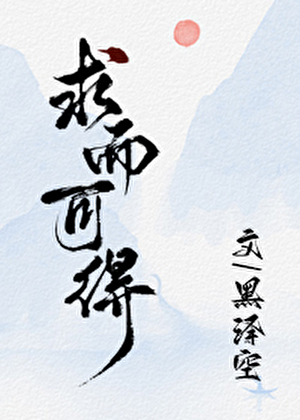 求而可得
文/黑泽空